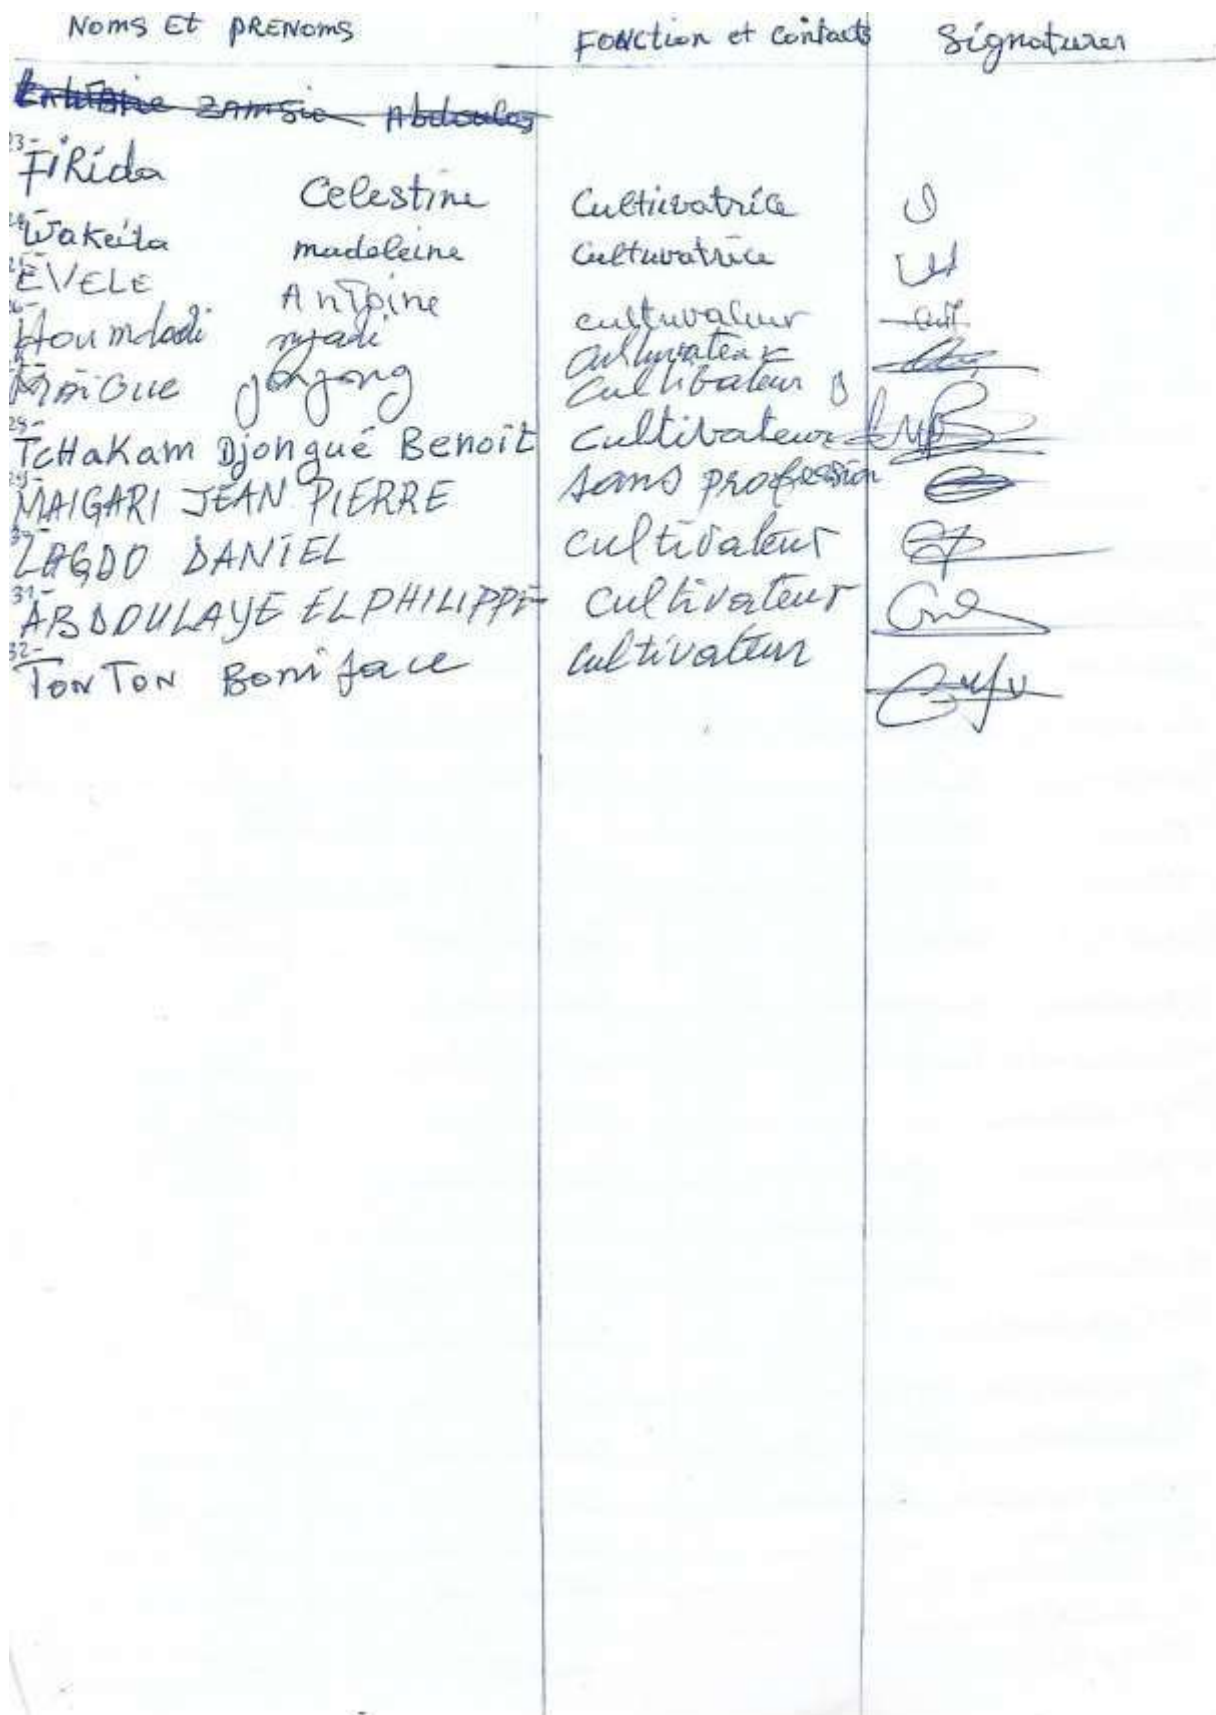 Noms Et PRENOMS Fonction et Contacts Signatures
ZAMSie Abdoulay
23- FiRida Celestine Cultivatrice
24- Wakeila madeleine Cultuvatrice
25- EVELE Antoine cultuvateur
26- Houmdadi njadi Cultuvateur
27- MAIGUE Cultibateur
28- TcHaKam Djongué Benoît Cultibateur
29- MAIGARI JEAN PIERRE sans profession
30- LAGDO DANIEL cultivateur
31- ABDOULAYE EL PHILIPPE cultivateur
32- TonTon Boniface cultivateur